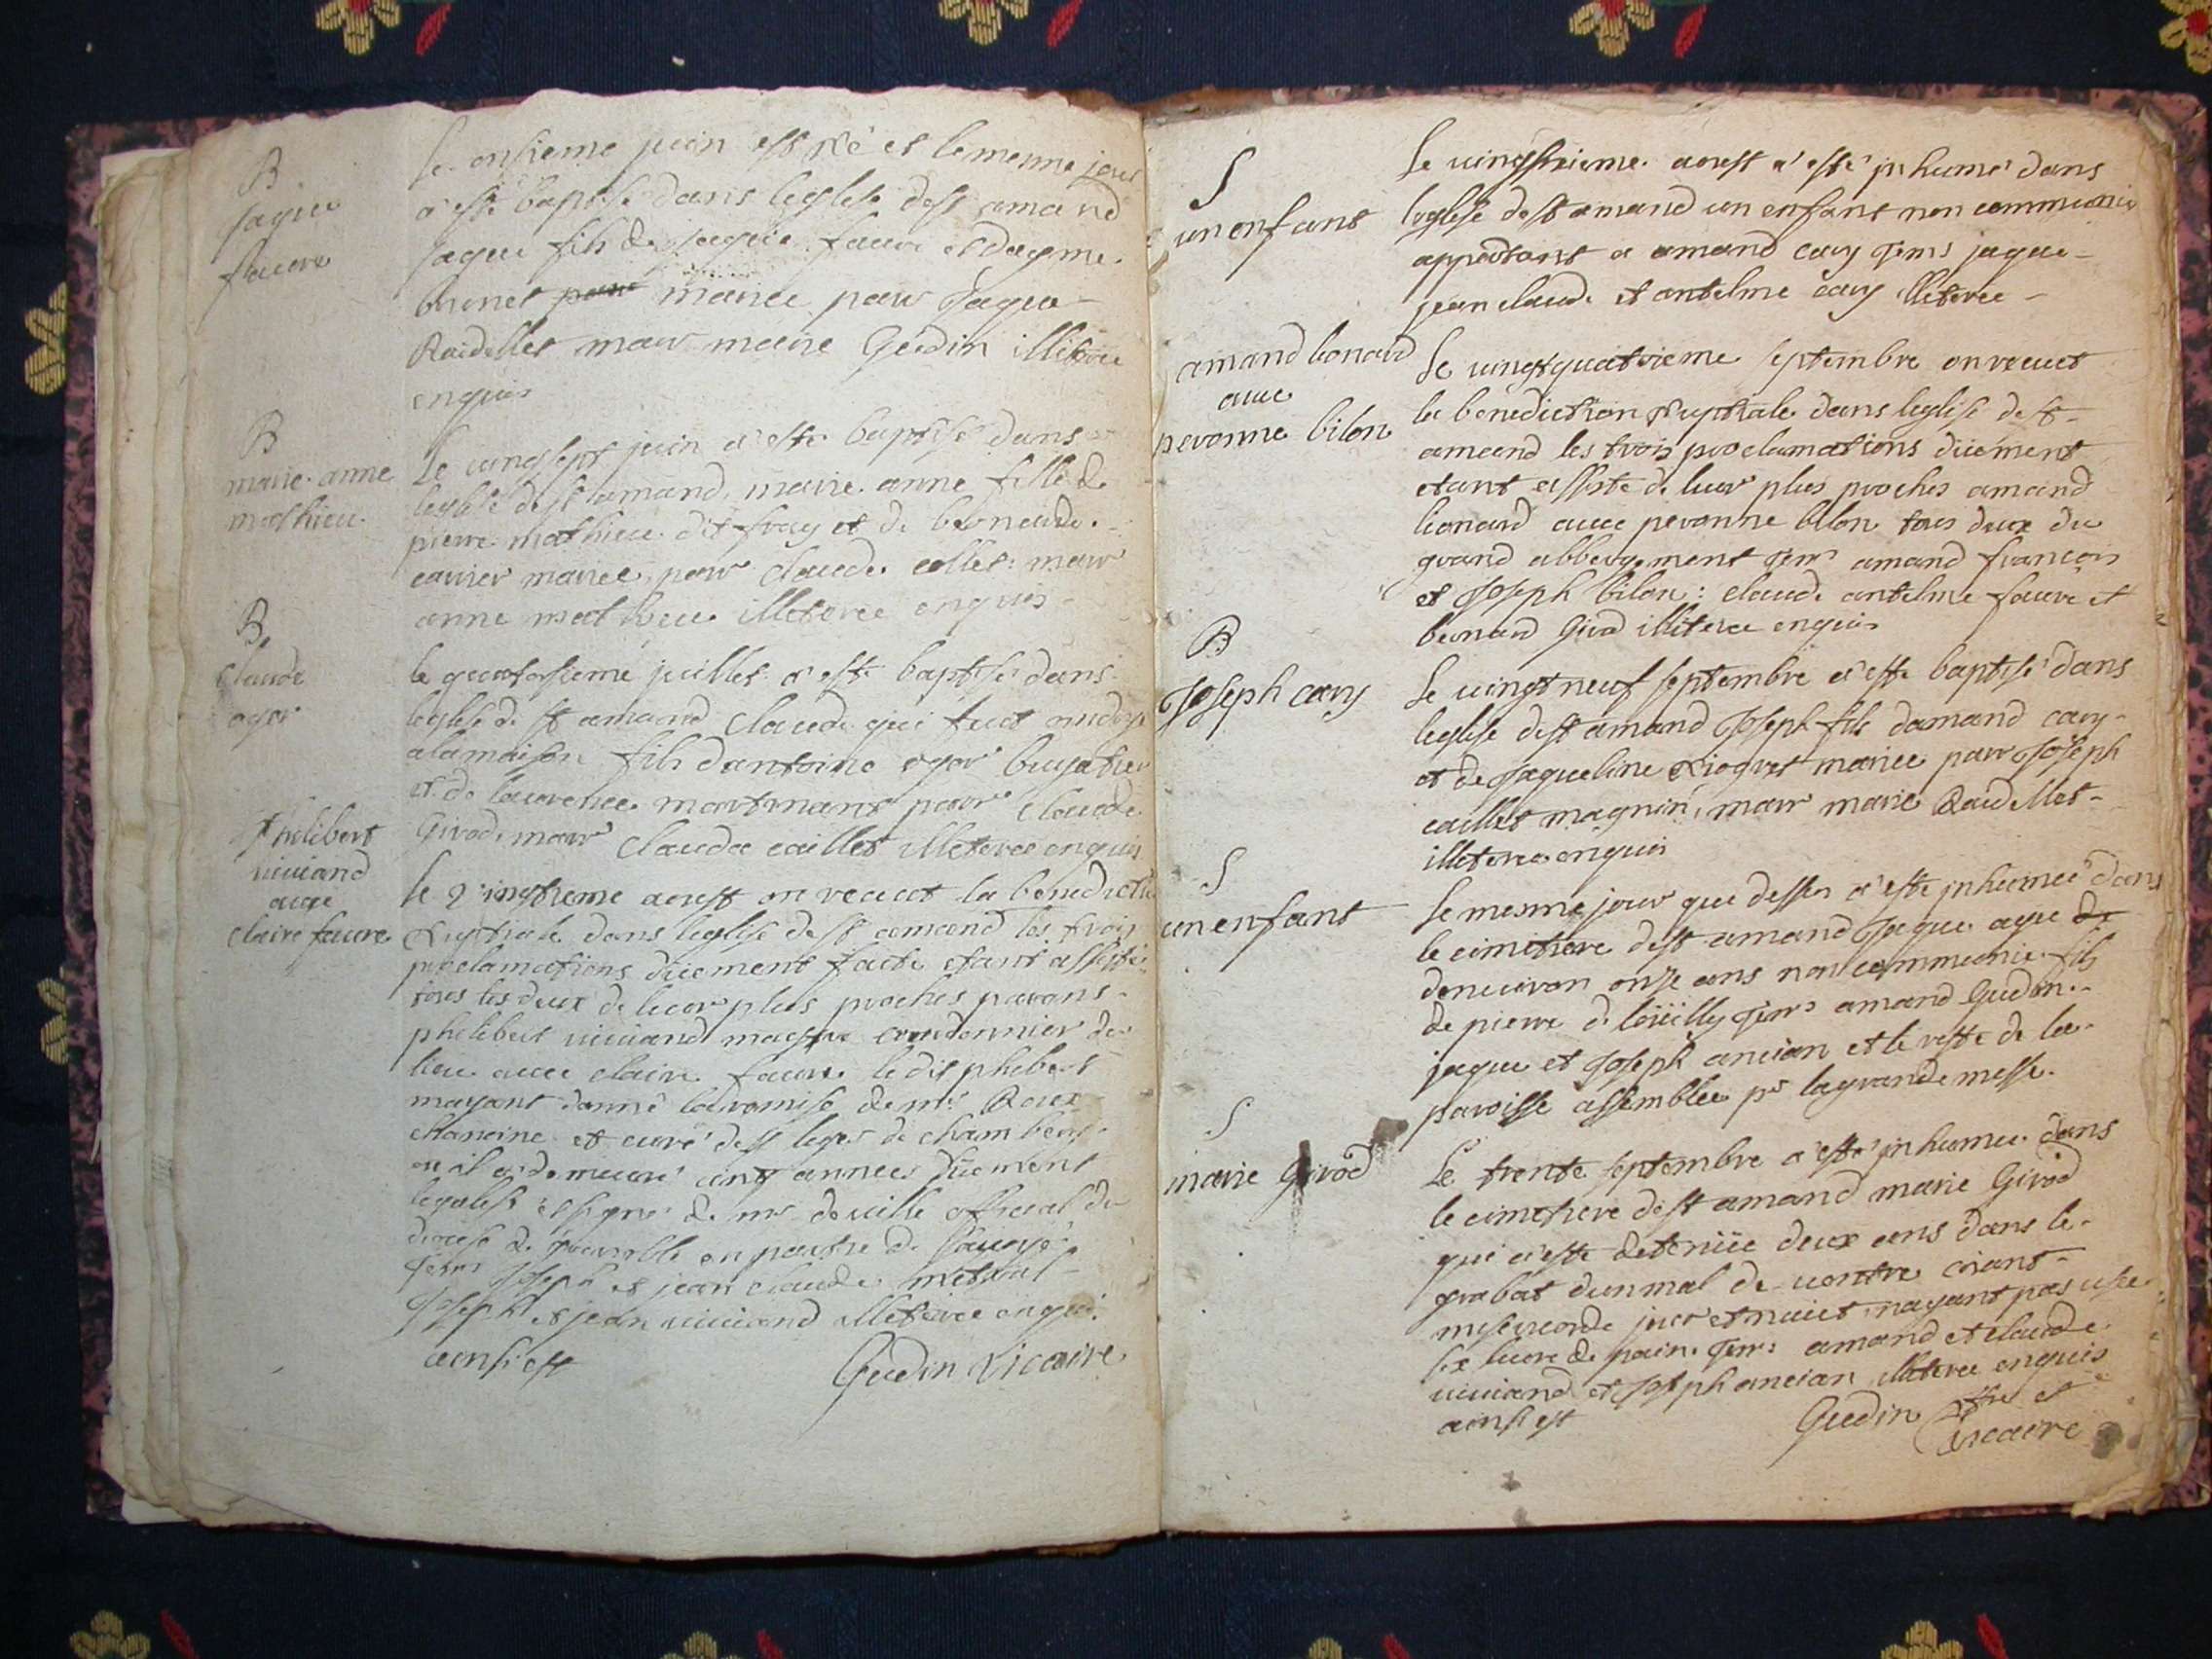 B
Jaque
faure
le onsieme juin est né et le mesme jour
a esté baptisé dans leglise dest amand
jaque fils de jaque faure et daymé
brunet mariee parr Jaque
Raidellet marr marie Gudin illiteree
enquis
B
marie anne
mathieu
Le vingsept juin a esté baptisé dans
leglise dest amand marie anne fille de
pierre mathieu dit fray et de bernarde
carrier mariee, parr claude collet: marr
anne mathieu illeteree enquis
B
Claude
oger
le quatorsieme juillet a esté baptisé dans
leglise de st amand claude qui fuct ondoye
alamaison fils dantoine oger
et de laurence parr claude
Girod, marr clauda caillet illeteree enquis
Philibert
viviand
avec
claire faure
le vingtieme aoust on receut la benedicti
Nuptiale dans leglise dest amand les trois
proclamations düement faite etant assisté
tous les deux de leur plus proches parans
philibert viviand maistre cordonnier du
lieu avec claire faure le dit philibert
mayant donné la remise de mr Roux
chanoine et curé dest leger de chambery
ou il a demeuré cinq annees düement
legalisé et signé de mr deville official du
diocese de grenoble en partie de savoye
Tems Joseph et jean claude
Joseph et jean viviand illeteree enqui
ainsi est Gudin Vicaire
S
un enfant
Le vingstrieme aoust a esté inhumé dans
leglise dest amand un enfant non communié
appartant a amand cary Tems jaque
jean claude et antelme cary illiteree
amand lionard
avec
peronne bilon
Le vingtquatrieme septembre on receut
la benediction Nuptiale dans leglise de st
amand les trois proclamations düement
etant assisté de leur plus proches amand
lionard avec peronne bilon tous deux du
grand abbergement Tems amand francois
et Joseph bilon: claude antelme faure et
bernard Girod illiteree enquis
B
Joseph cary
Le vingt neuf septembre a esté baptisé dans
leglise dest amand Joseph fils damand cary
et de Jaqueline Liogret mariee parr Joseph
caillet magnin, marr marie Raidellet
illeteree enquis
S
un enfant
Le mesme jour que dessus a esté inhumé dans
le cimitiere dest amand Jaque agé de
denuiron onze ans non communié fils
de pierre de loüilly Tems amand Gudin
jaque et Joseph ancian et le reste de la
paroisse assemblee pr lagrande messe
S
marie Girod
Le trente septembre a esté inhumee dans
le cimetiere dest amand marie Girod
qui a esté detenüe deux ans dans le
grabat dun mal de ventre criant
misericorde jour et nuict nayant pas usé
six livre de pain. Tems: amand et claude
viviand et Joseph ancian illeteree enquis
ainsi est Gudin ptre et
vicaire